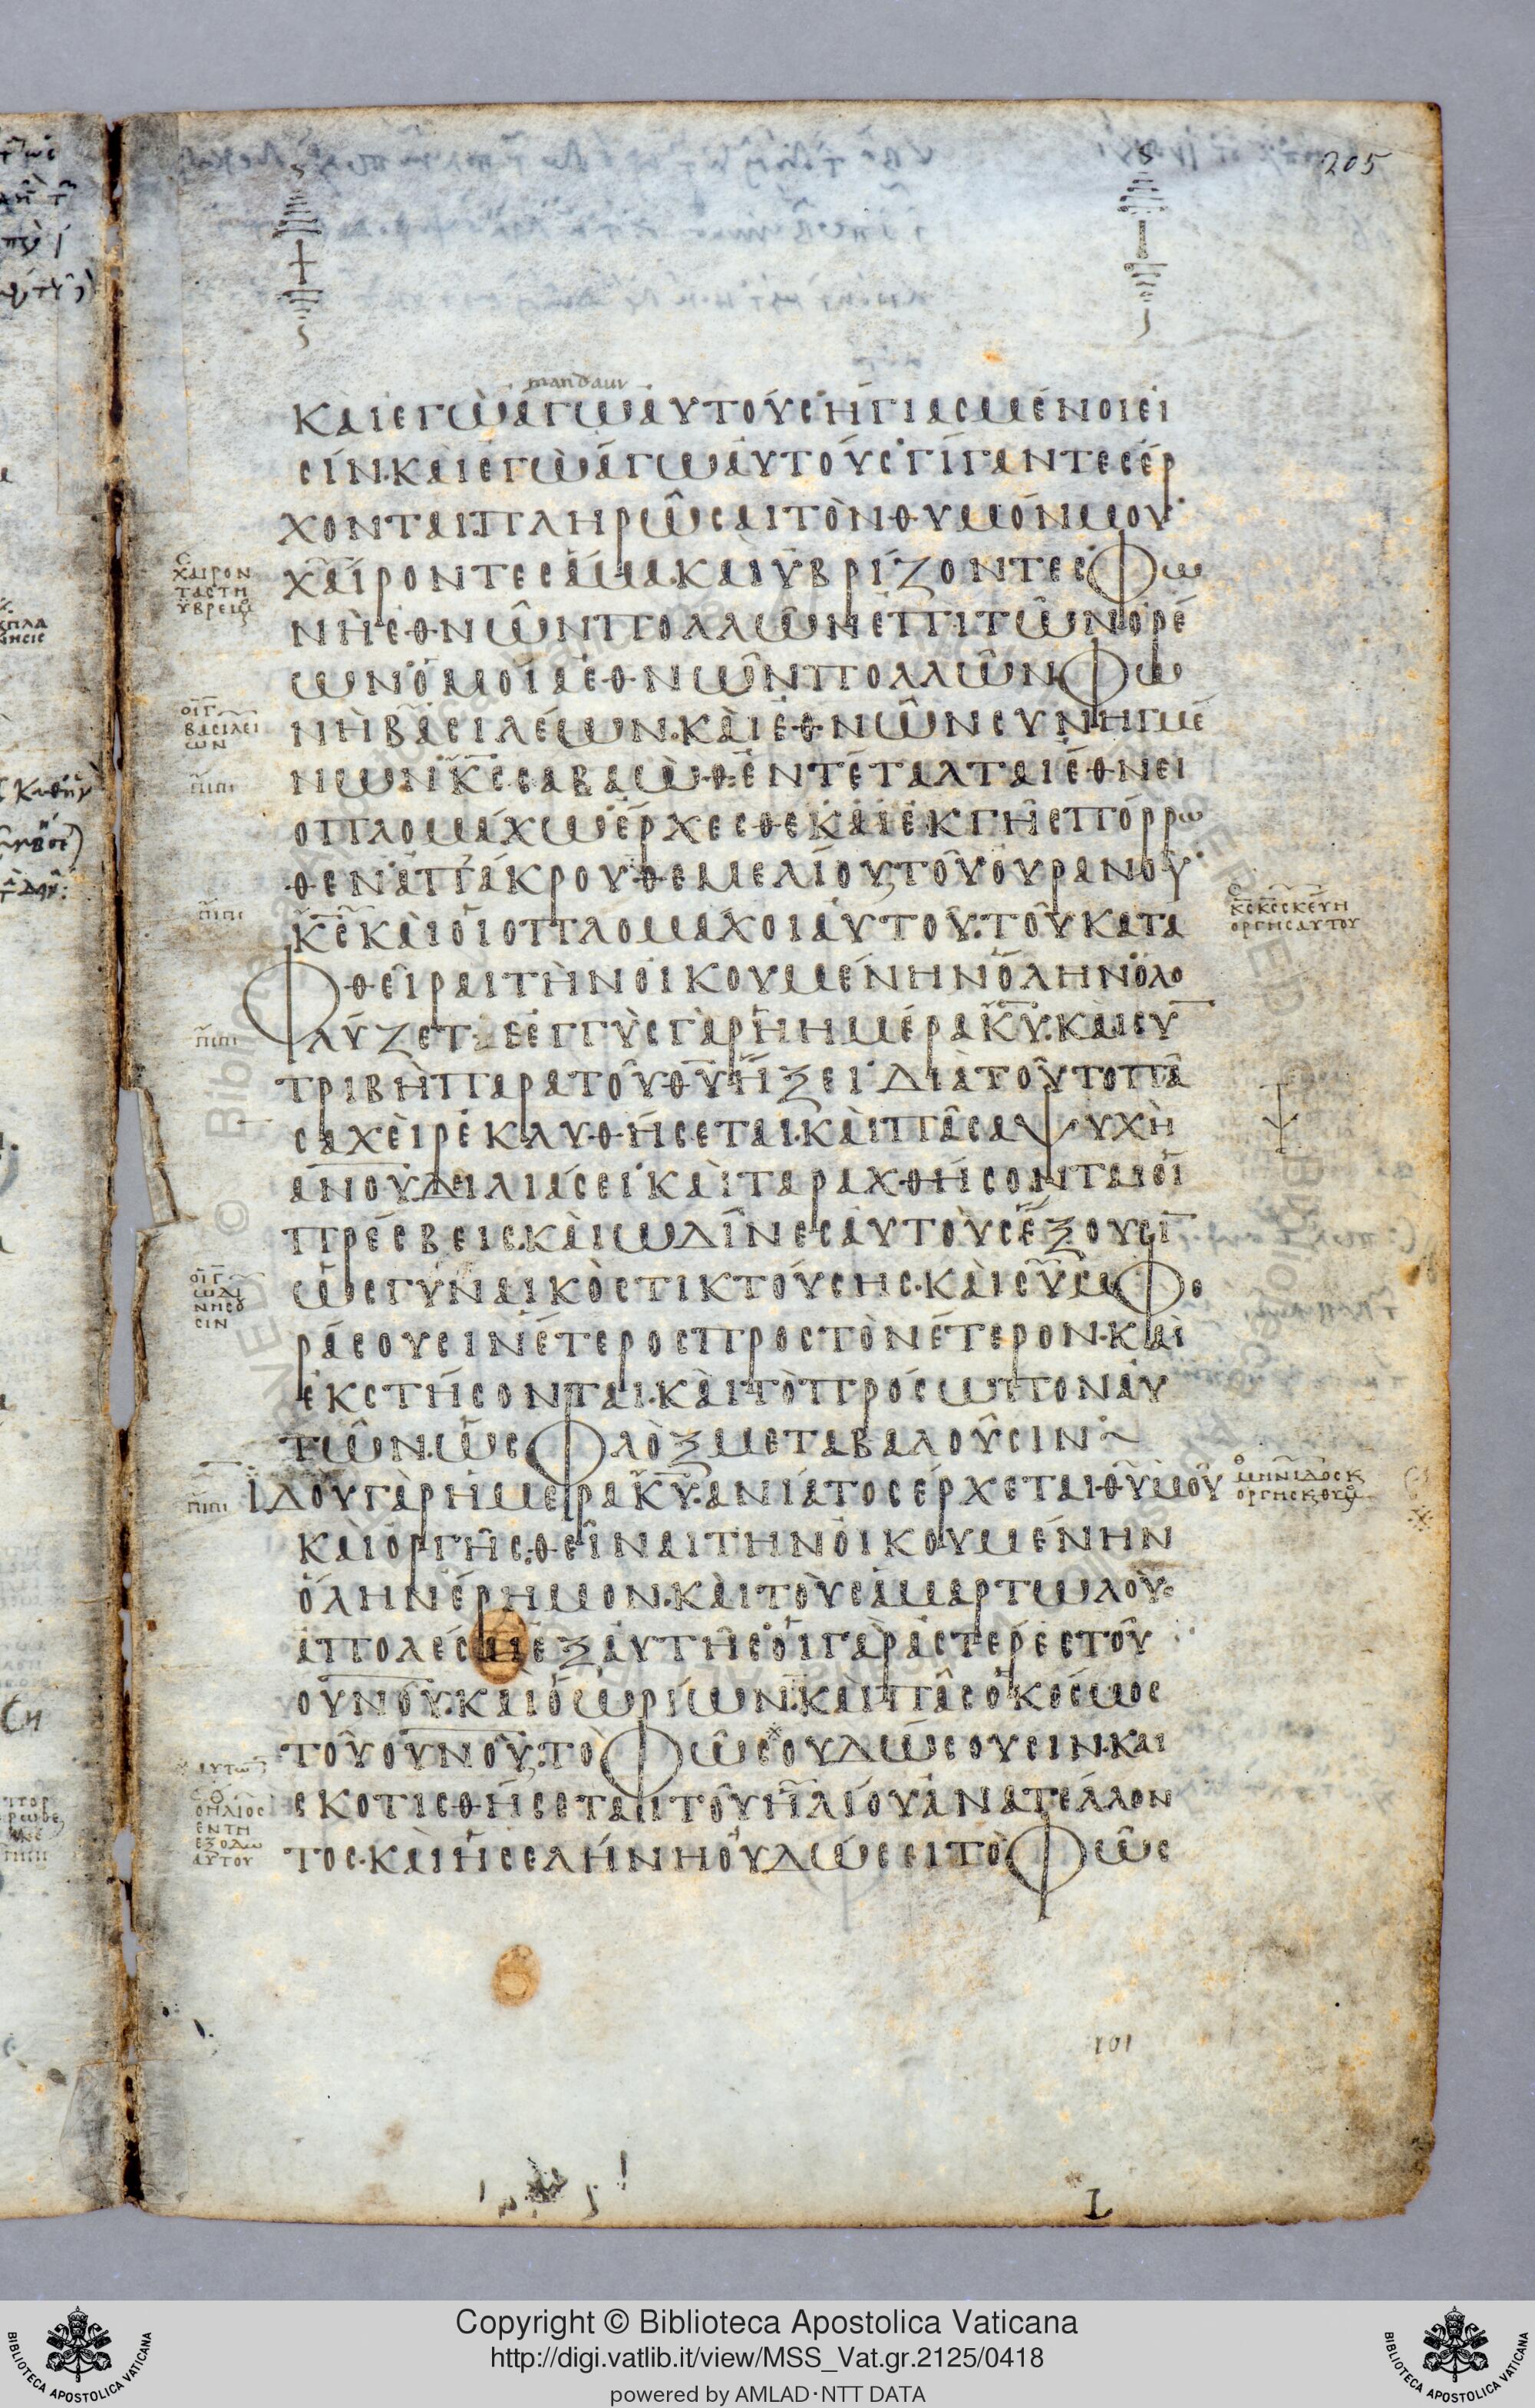 205
mandaui
ΚΑΙΕΓΩΑΓΩΑΥΤΟΥС·ΗΓΙΑСΜΕΝΟΙΕΙ
СΙΝ·ΚΑΙΕΓΩΑΓΩΑΥΤΟΥС·ΓΙΓΑΝΤΕСΕΡ
ΧΟΝΤΑΙΠΛΗΡΩСΑΙΤΟΝΘΥΜΟΝΜΟΥ·
ΧΑΙΡΟΝΤΕСΑΜΑ·ΚΑΙΥΒΡΙΖΟΝΤΕС·ΦΩ
ΝΗΕΘΝΩΝΠΟΛΛΩΝΕΠΙΤΩΝΟΡΕ
ΩΝΟΜΟΙΑΕΘΝΩΝΠΟΛΛΩΝ·ΦΩ
ΝΗΒΑСΙΛΕΩΝ·ΚΑΙΕΘΝΩΝСΥΝΗΓΜΕ
ΝΩΝ·Κ̅С̅СΑΒΑΩΘΕΝΤΕΤΑΛΤΑΙΕΘΝΕΙ
ΟΠΛΟΜΑΧΩ·ΕΡΧΕСΘΕΚΑΙΕΚΓΗСΠΟΡΡΩ
ΘΕΝΑΠΑΚΡΟΥΘΕΜΕΛΙΟΥΤΟΥΟΥΡΑΝΟΥ·
Κ̅С̅ΚΑΙΟΙΟΠΛΟΜΑΧΟΙΑΥΤΟΥ·ΤΟΥΚΑΤΑ
ΦΘΕΙΡΑΙΤΗΝΟΙΚΟΥΜΕΝΗΝΟΛΗΝ·ΟΛΟ
ΛΥΖΕΤΕΕΓΓΥСΓΑΡΗΗΜΕΡΑΚ̅Υ̅·ΚΑΙСΥ̅
ΤΡΙΒΗΠΑΡΑΤΟΥΘ̅Υ̅ΗΞΕΙ·ΔΙΑΤΟΥΤΟΠΑ
СΑΧΕΙΡΕΚΛΥΘΗСΕΤΑΙ·ΚΑΙΠΑСΑΨΥΧΗ
Α̅Ν̅Ο̅Υ̅ΔΙΛΙΑСΕΙ·ΚΑΙΤΑΡΑΧΘΗСΟΝΤΑΙΟΙ
ΠΡΕСΒΕΙС·ΚΑΙΩΔΙΝΕСΑΥΤΟΥСΕΞΟΥСΙ̅
ΩСΓΥΝΑΙΚΟСΤΙΚΤΟΥСΗС·ΚΑΙСΥΜΦΟ
ΡΑСΟΥСΙΝΕΤΕΡΟСΠΡΟСΤΟΝΕΤΕΡΟΝ·ΚΑΙ
ΕΚСΤΗСΟΝΤΑΙ·ΚΑΙΤΟΠΡΟСΩΠΟΝΑΥ
ΤΩΝ·ΩСΦΛΟΞΜΕΤΑΒΑΛΟΥСΙΝ·
ΙΔΟΥΓΑΡΗΜΕΡΑΚ̅Υ̅·ΑΝΙΑΤΟСΕΡΧΕΤΑΙΘΥΜΟΥ
ΚΑΙΟΡΓΗС·ΘΕΙΝΑΙΤΗΝΟΙΚΟΥΜΕΝΗΝ
ΟΛΗΝΕΡΗΜΟΝ·ΚΑΙΤΟΥСΑΜΑΡΤΩΛΟΥС
ΑΠΟΛΕСΑΙΕΞΑΥΤΗС·ΟΙΓΑΡΑСΤΕΡΕСΤΟΥ
Ο̅Υ̅Ν̅Ο̅Υ̅·ΚΑΙΟΩΡΙΩΝ·ΚΑΙΠΑСΟΚΟСΜΟС
ΤΟΥΟ̅Υ̅Ν̅Ο̅Υ̅·ΤΟΦΩСΟΥΔΩСΟΥСΙΝ·ΚΑΙ
СΚΟΤΙСΘΗСΕΤΑΙΤΟΥΗΛΙΟΥΑΝΑΤΕΛΛΟΝ
ΤΟС·ΚΑΙΗСΕΛΗΝΗΟΥΔΩСΕΙΤΟΦΩС
С
ΧΑΙΡΟΝ
ΤΑСΤΗ
ΥΒΡΕΙΜ
ΟΙΓ
ΒΑСΙΛΕΙ
ΩΝ
ΠΙΠΙ
ΠΙΠΙ
ΠΙΠΙ
ΟΙΓ
ΩΔΙ
ΝΗСΟ
СΙΝ
ΠΙΠΙ
ΑΥΤΩ
СΘ
ΟΗΛΙΟС
ΕΝΤΗ
ΕΞΟΔΩ
ΑΥΤΟΥ
С
Κ̅С̅ΚСΚΕΥΗ
ΟΡΓΗСΑΥΤΟΥ
ΜΗΝΙΔΟСΚ
ΟΡΓΗСΚΘΥΜ
101
Copyright © Biblioteca Apostolica Vaticana
http://digi.vatlib.it/view/MSS_Vat.gr.2125/0418
powered by AMLAD·NTT DATA
BIBLIOTECA APOSTOLICA VATICANA
BIBLIOTECA APOSTOLICA VATICANA